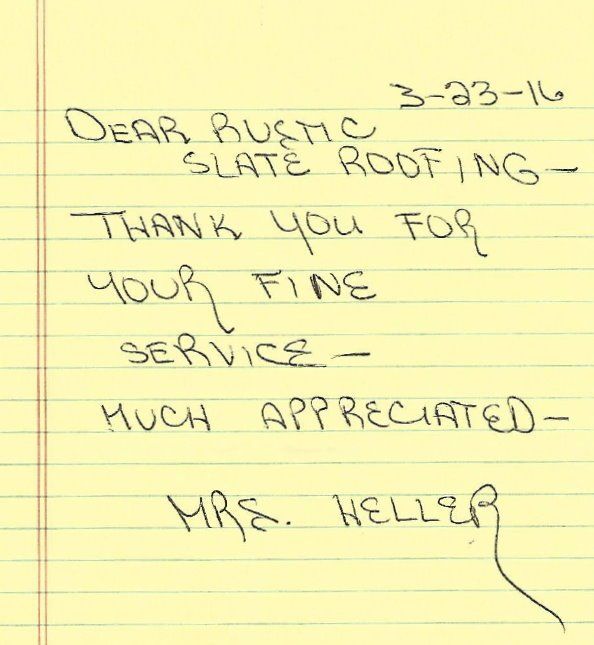 3-23-16
DEAR RUSTIC
SLATE ROOFING-
THANK YOU FOR
YOUR FINE
SERVICE-
MUCH APPRECIATED-
MRS. HELLER